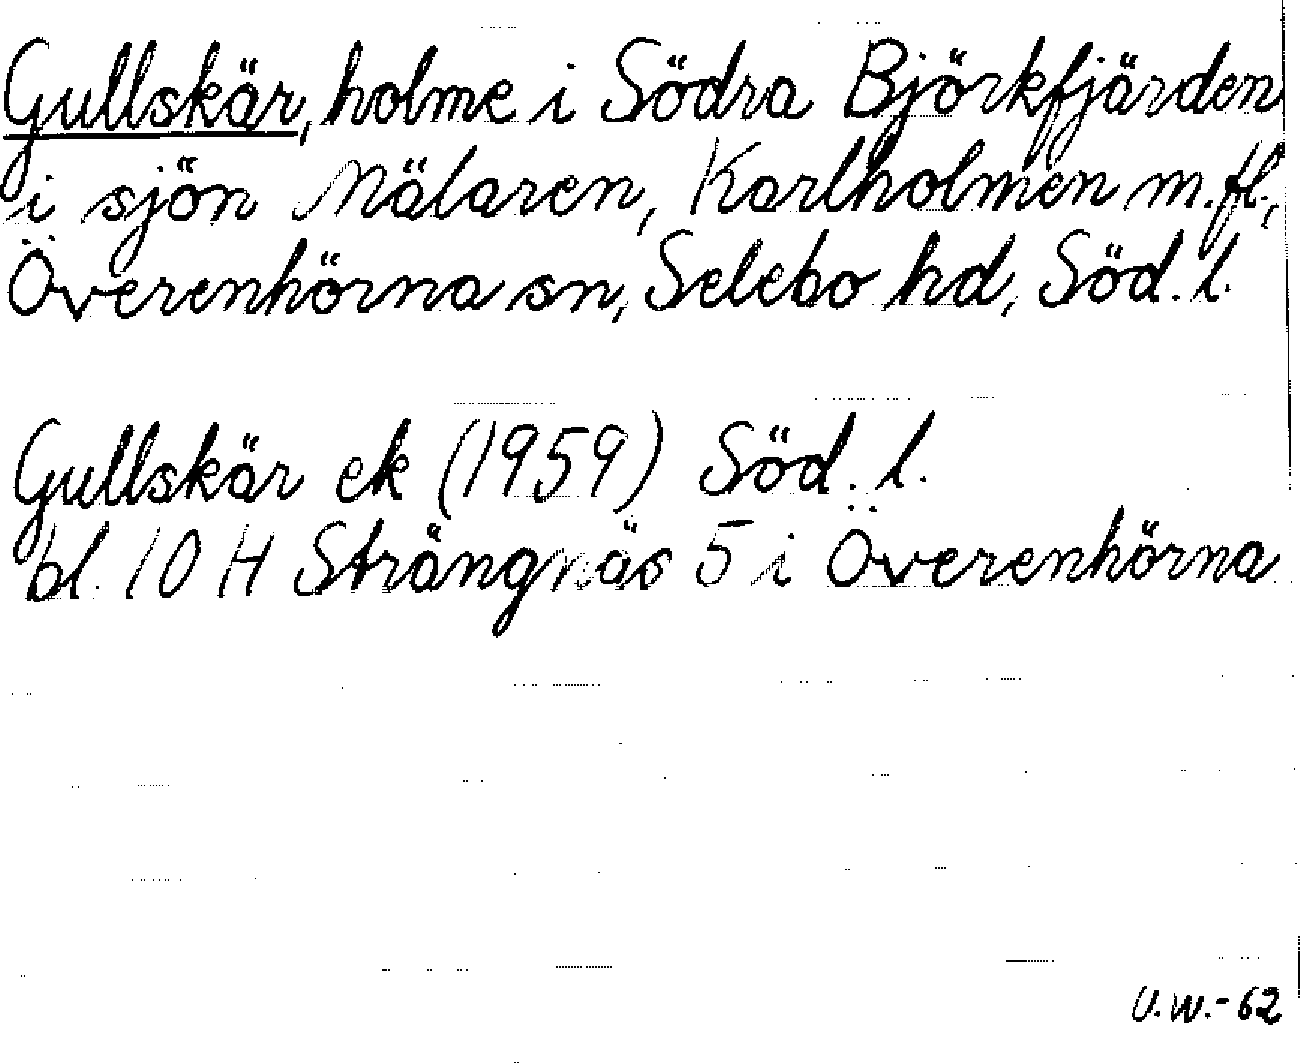 Gullskär, holme i Södra Björkfjärden
i sjön Mälaren, Karlholmen m.fl.,
Överenhörna sn, Selebo hd, Söd. l.
Gullskär ek (1959) Söd. l.
bl. 10 H Strängnäs 5 i Överenhörna
U.W.-62